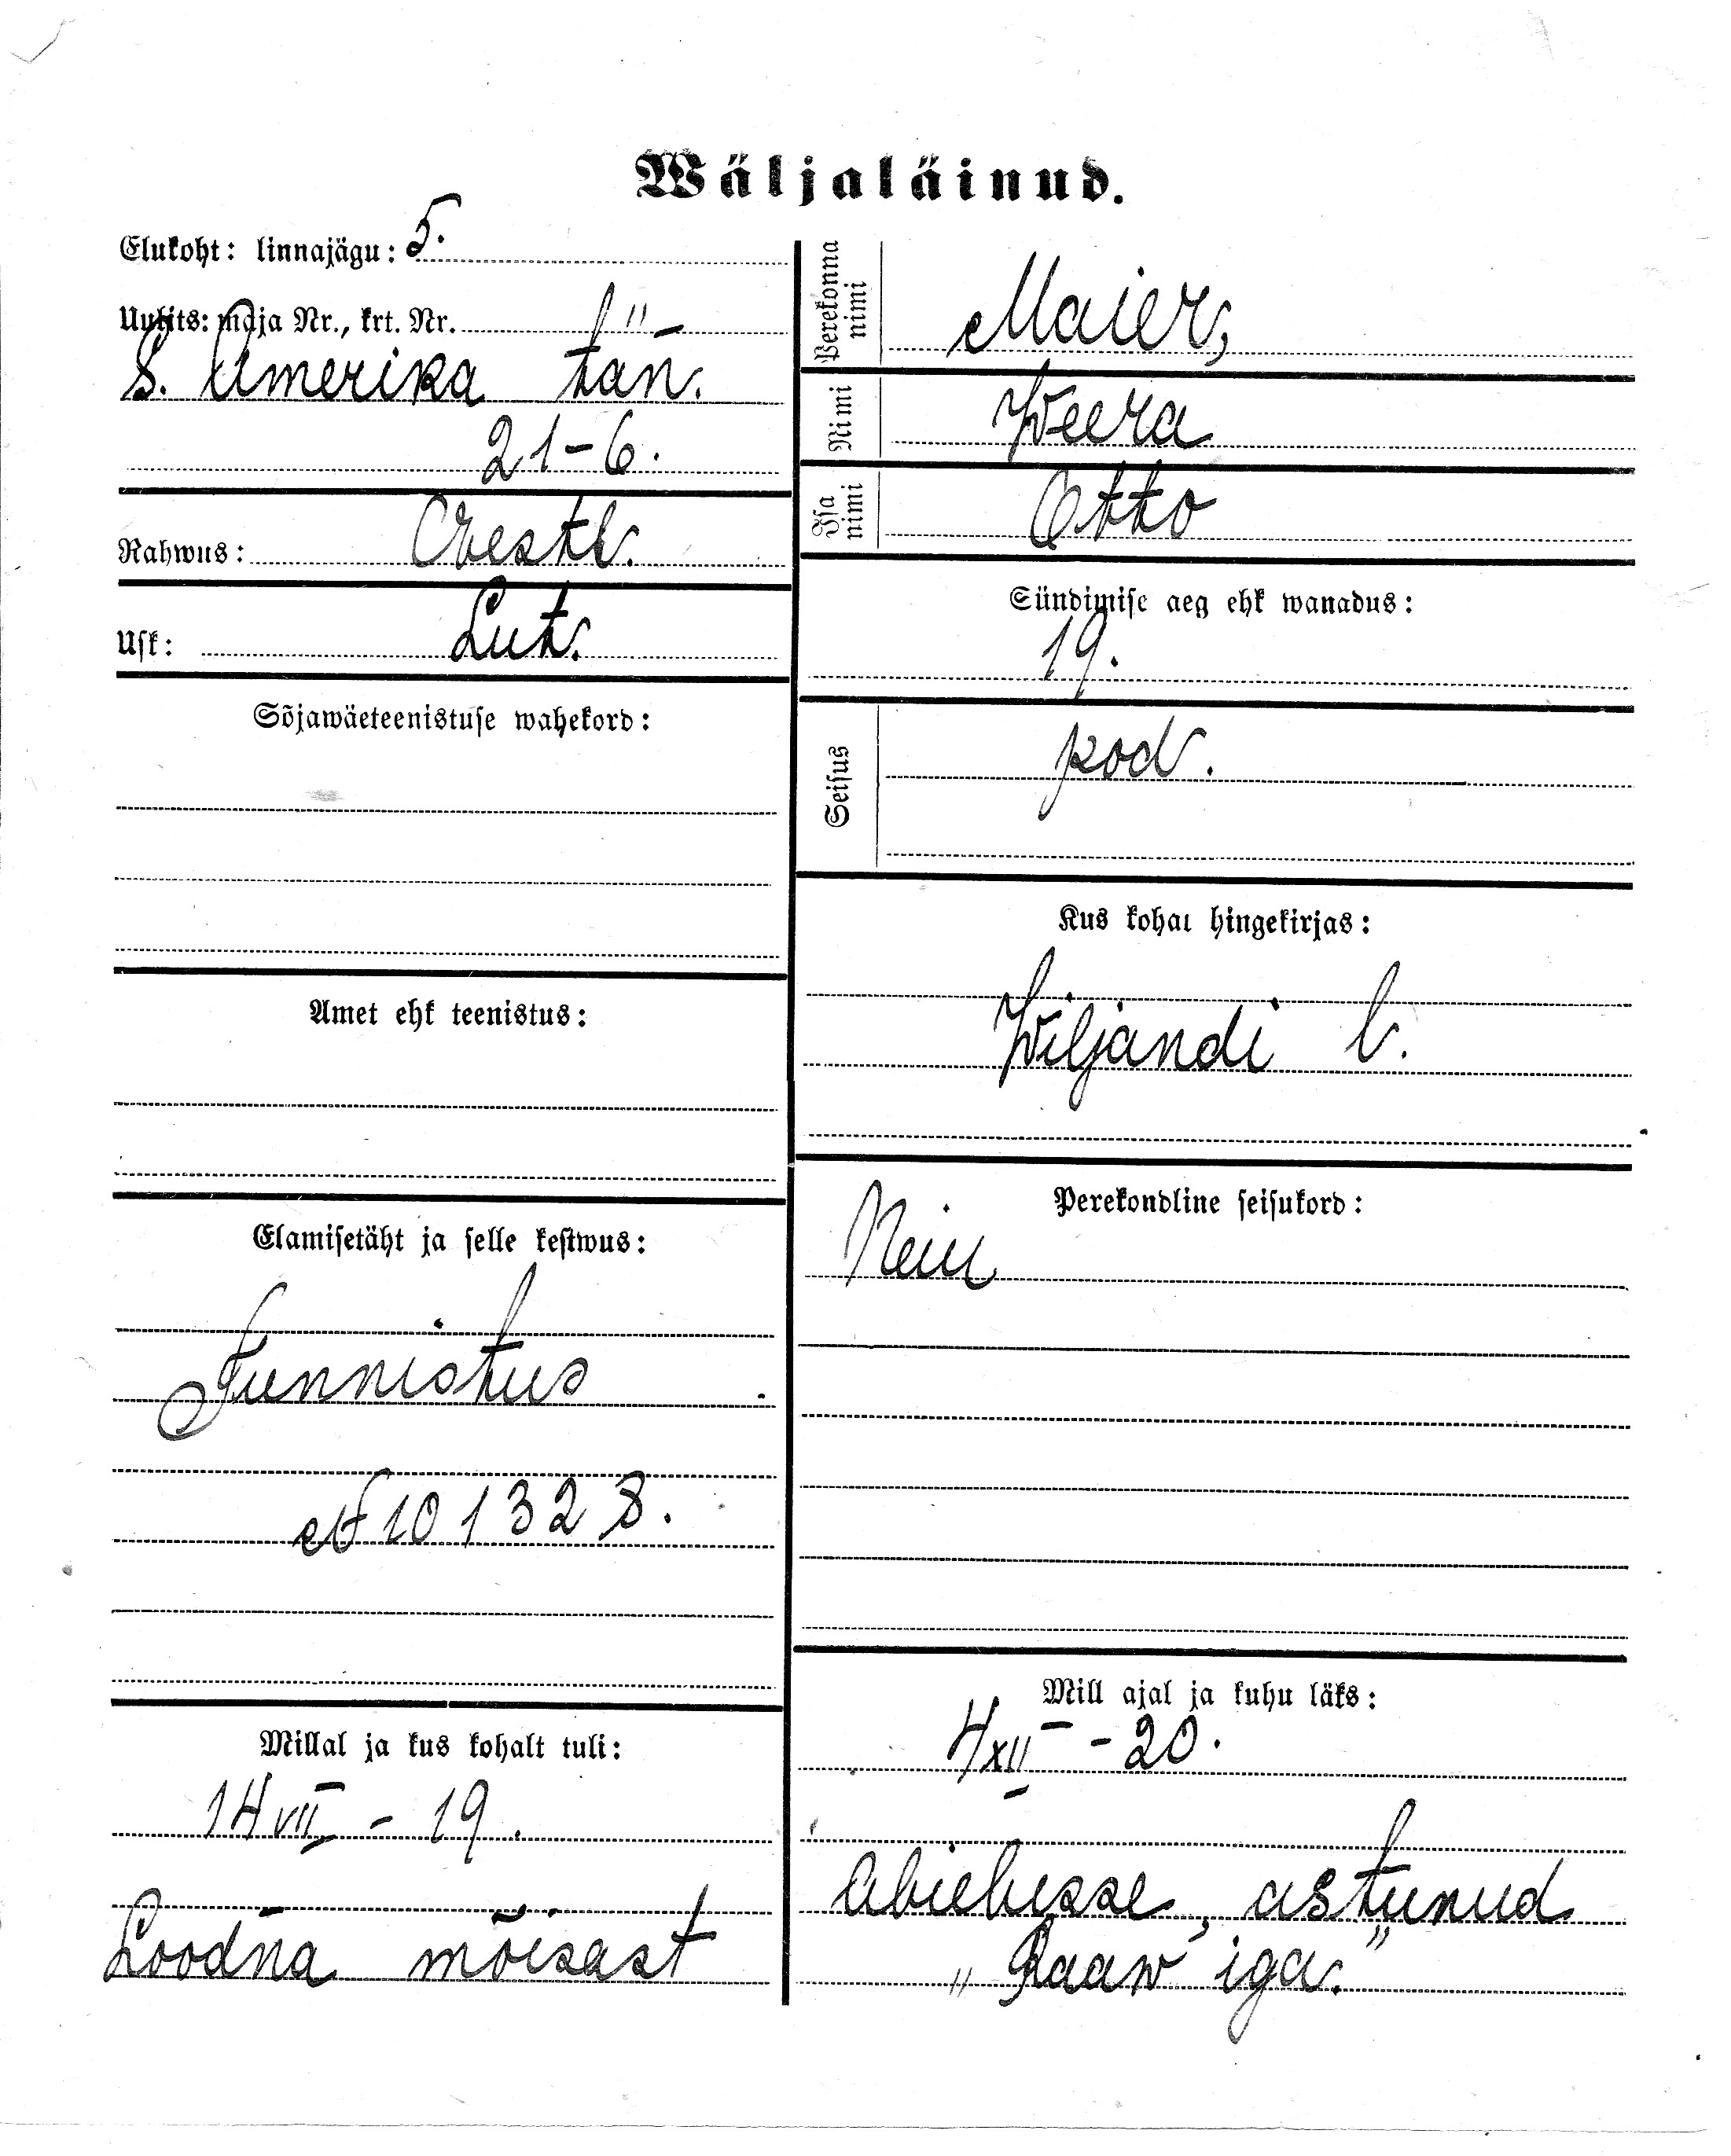 Wäljaläinud.
Elukoht: linnajägu: 5.
Uulits: maja Nr., krt. Nr.
S. Amerika tän.
21-6.
Rahwus: Eestl.
Usk: Lut.
Sõjawäeteenistuse wahekord:
Amet ehk teenistus:
Elamisetäht ja selle kestwus:
Tunnistus
№ 101328.
Millal ja kus kohalt tuli:
14 VII - 19.
Loodna mõisast
Perekonna nimi Maier,
Nimi Weera
Isa nimi Otto
Sündimise aeg ehk wanadus:
19.
Seisus kod.
Kus kohal hingekirjas:
Wiljandi l.
Perekondline seisukord:
Neiu
Mill ajal ja kuhu läks:
4 XII - 20.
Abielusse, astunud
„Raaw iga."